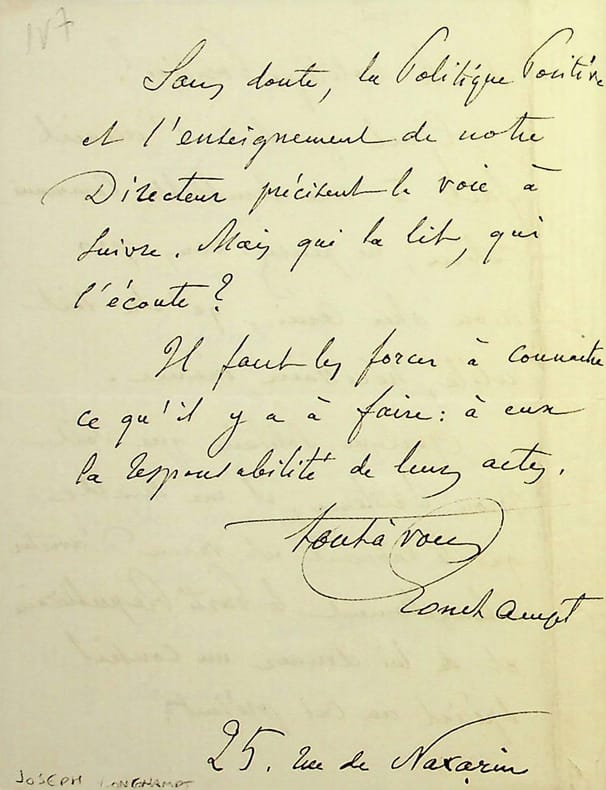 157
Sans doute, la Politique Positive
et l'enseignement de notre
Directeur précisent la voie à
suivre. Mais qui la lit, qui
l'écoute?
Il faut les forcer à connaitre
ce qu'il y a à faire: à eux
la responsabilité de leurs actes.
tout à vous
Lonchampt
25. rue de Navarin
JOSEPH LONCHAMPT